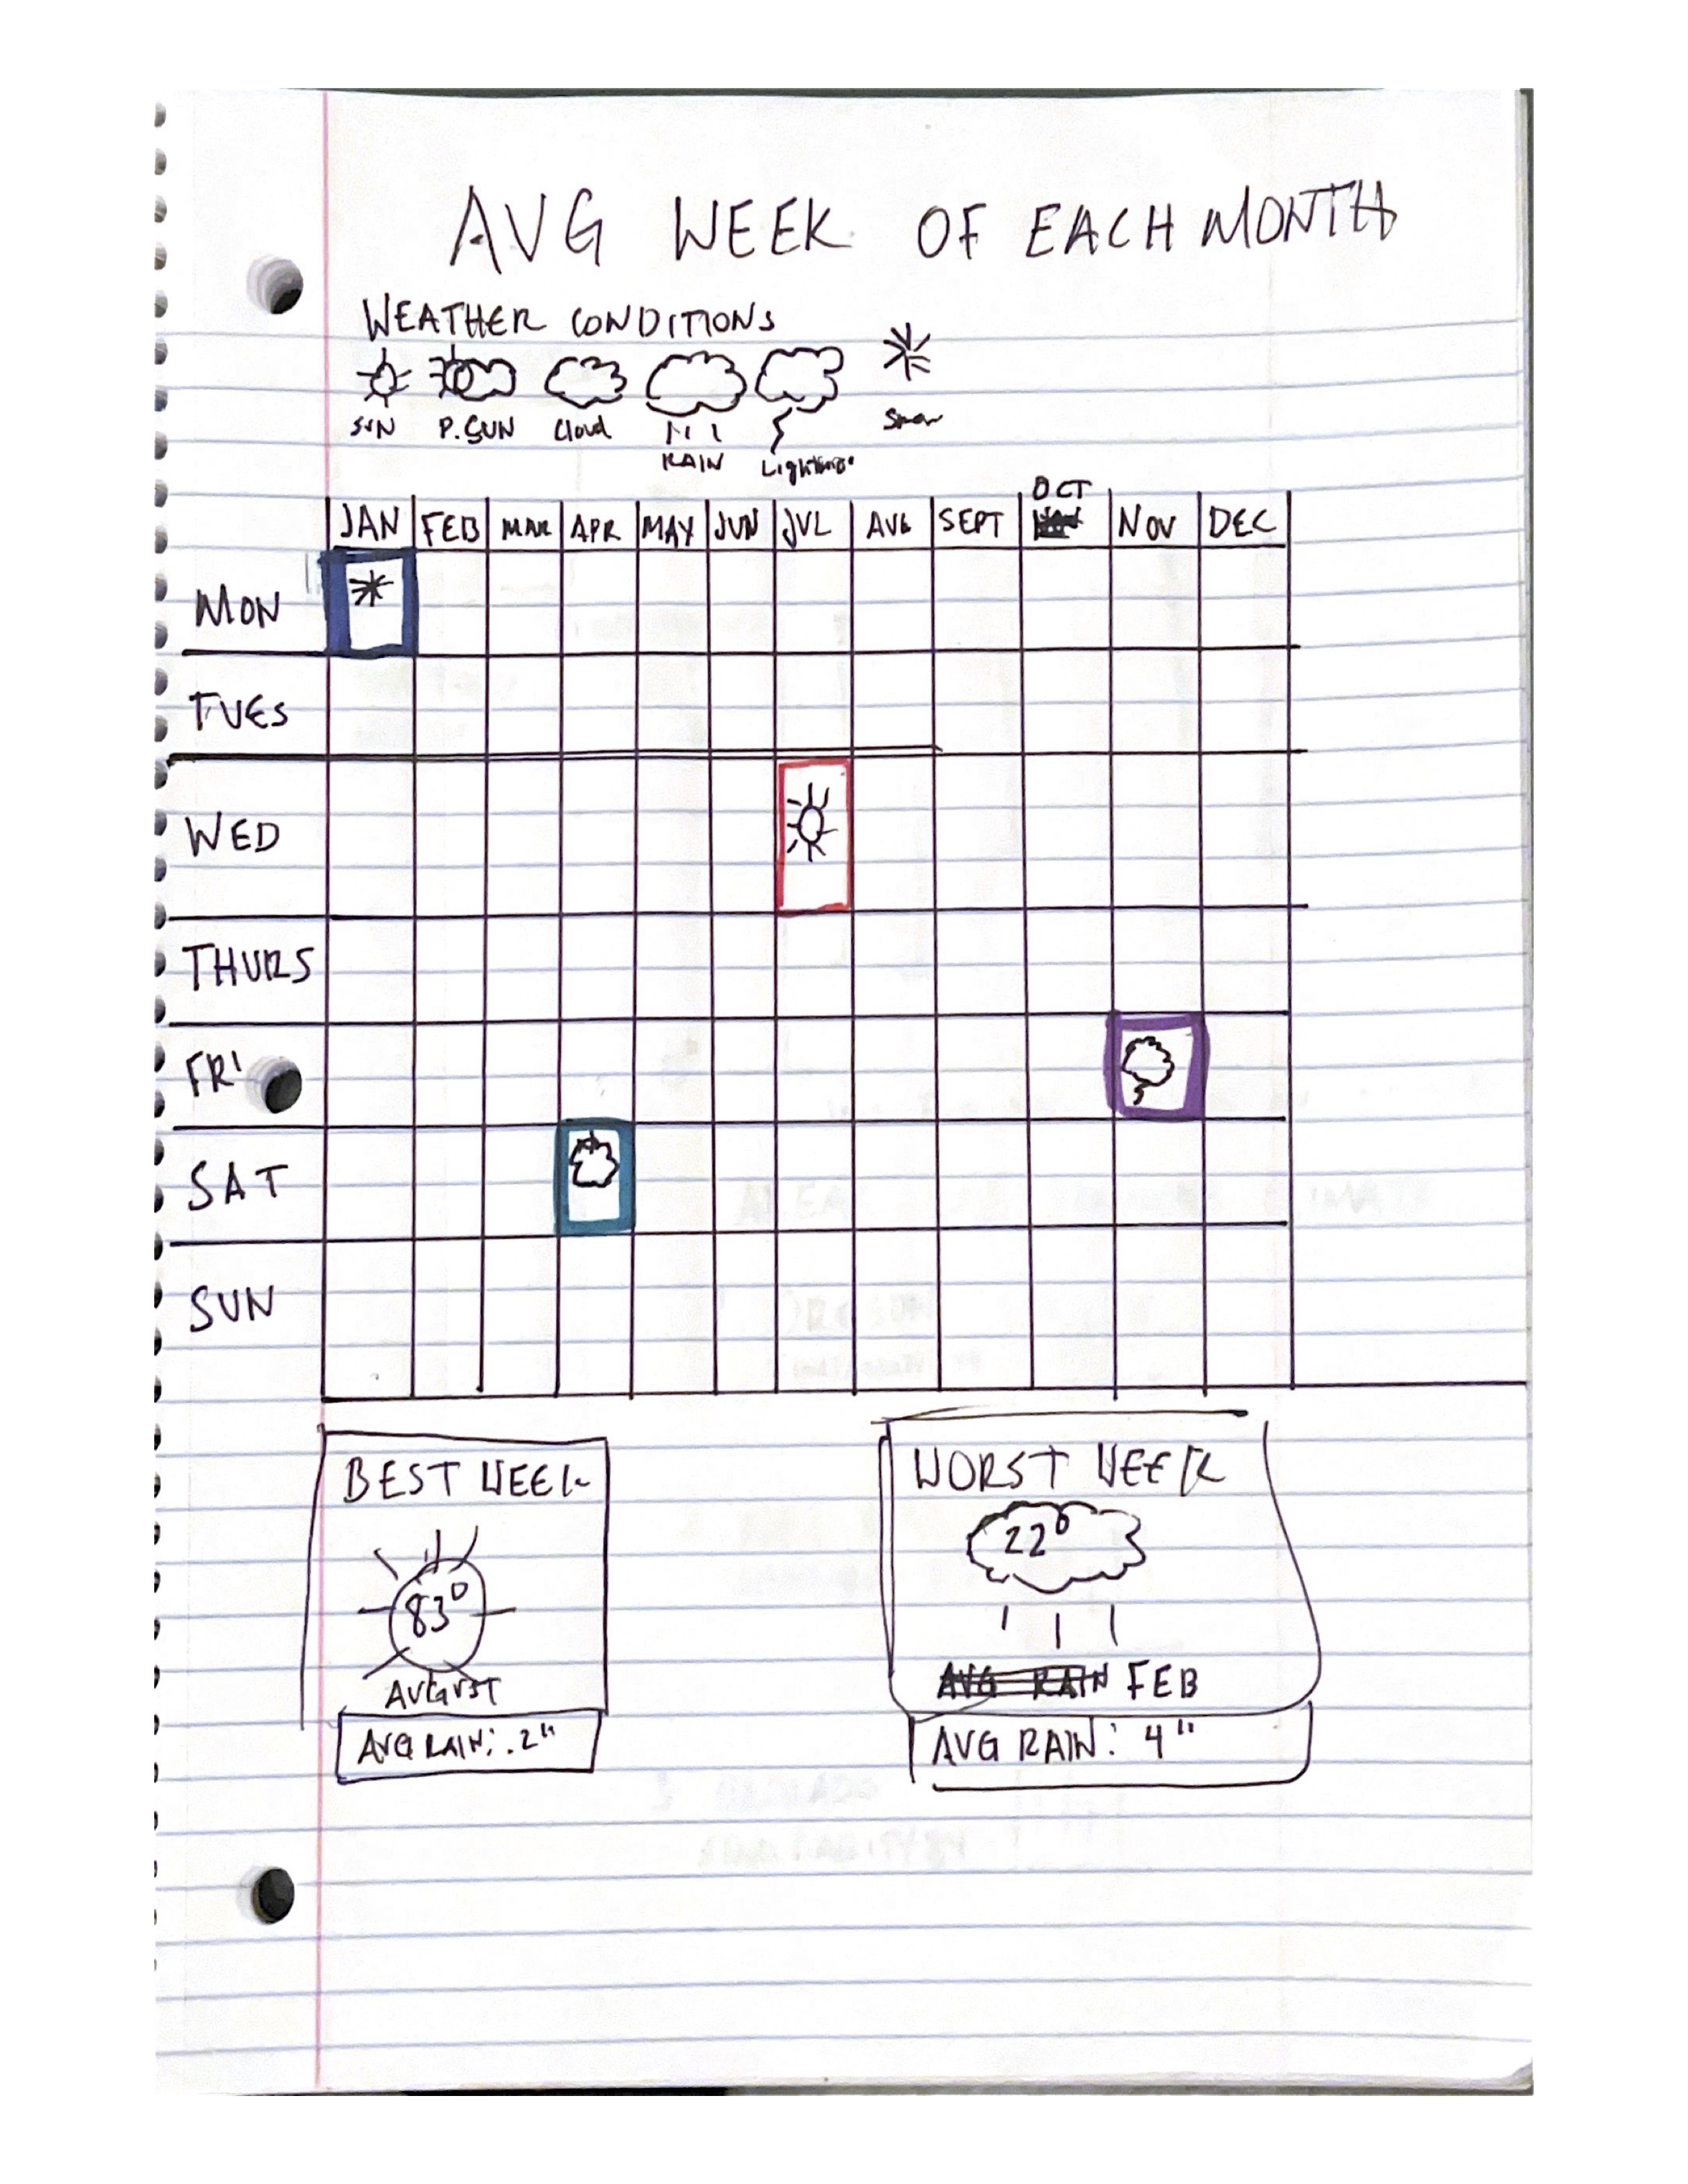 AVG WEEK OF EACH MONTH
WEATHER CONDITIONS
SUN P.SUN Cloud RAIN Lightning Snow
JAN FEB MAR APR MAY JUN JUL AUG SEPT OCT NOV DEC
MON
TUES
WED
THURS
FRI
SAT
SUN
BEST WEEK
83°
AUGUST
AVG RAIN: .2"
WORST WEEK
22°
AVG RAIN FEB
AVG RAIN: 4"